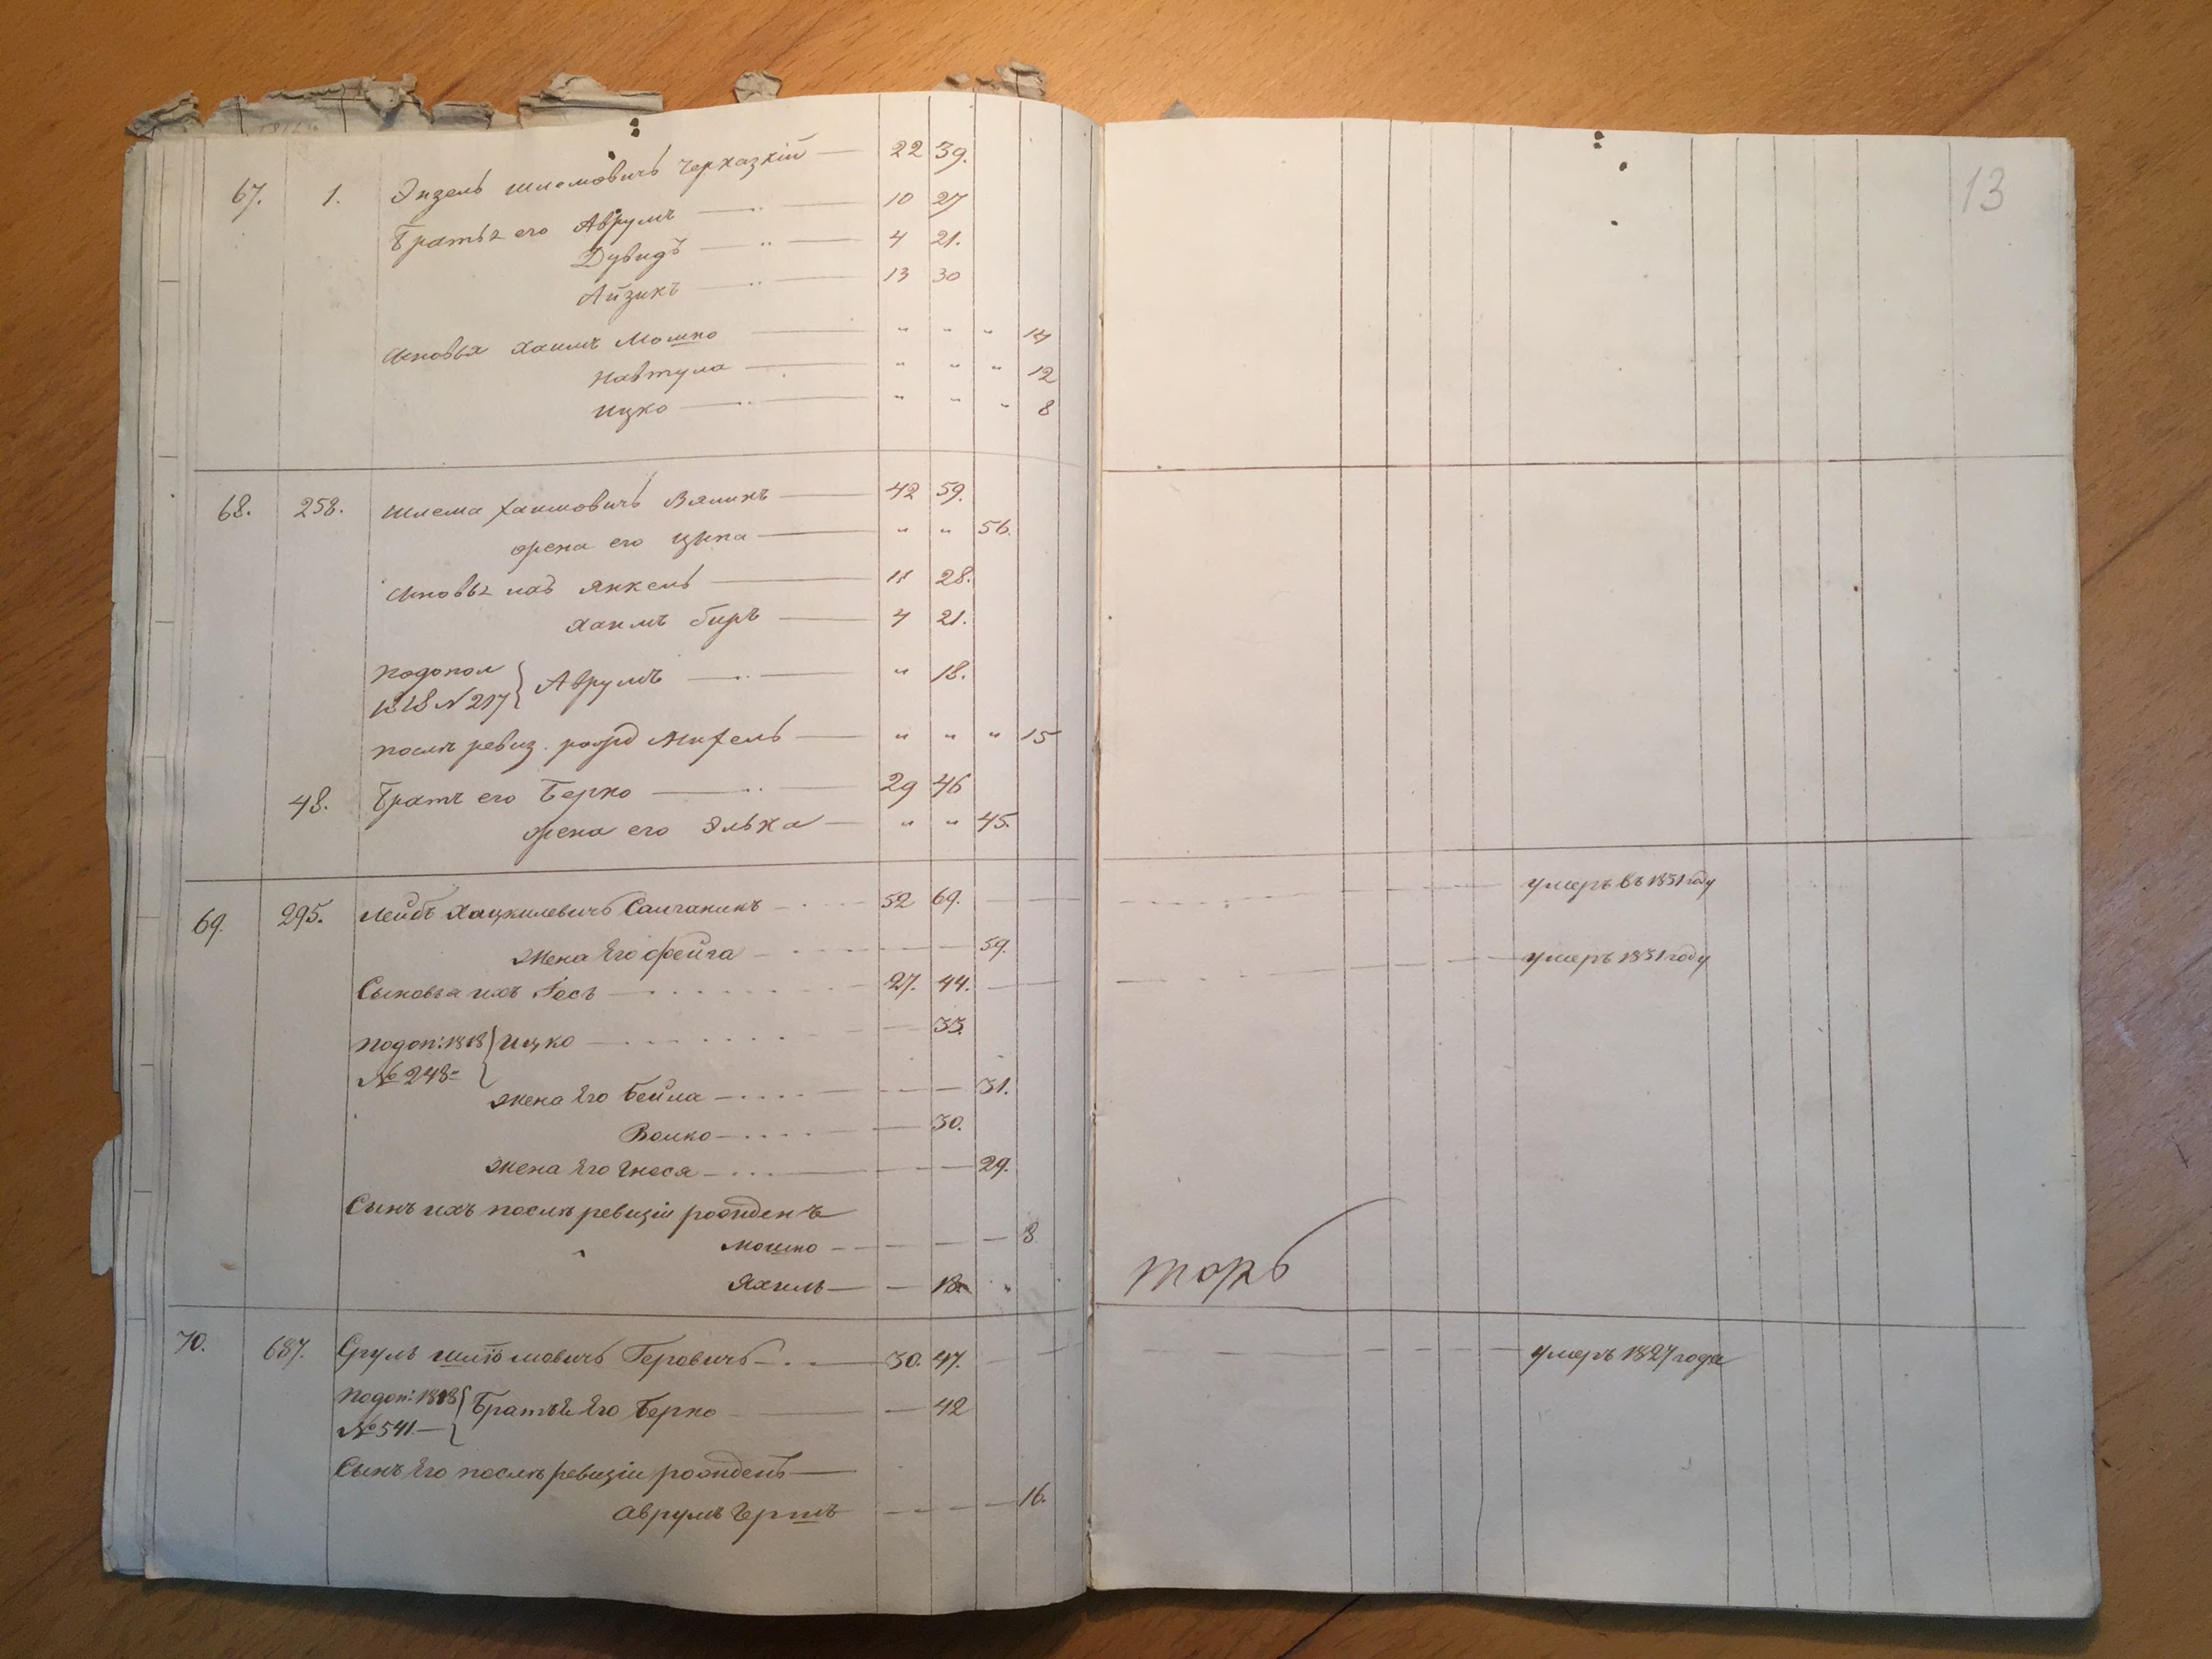 13
67. 1. Энзель Шлемовичь Черкаскій 22 39.
Братья его Аврумъ 10 27
Дувидъ 4 21.
Айзикъ 13 30
Сыновья Хаимъ Мошко " " " 14
Навтула " " " 12
Ицко " " " 8
68. 258. Шлема Хаимовичь Вяликъ 42 59.
жена его Цыпа " " 56.
Сыновья ихъ Янкель 11 28.
Хаимъ Беръ 4 21.
Подопол
1818 № 217 } Аврумъ " 18.
послѣ ревиз. рожд " " " 15
48. Братъ его Берко 29 46
жена его Элька " " 45.
69. 295. Лейбъ Хацкилевичь 52 69. умеръ въ 1831 году
жена Его фейга 59.
Сыновья ихъ Іосъ 27. 44. умеръ 1831 году
Подоп: 1818 } Ицко 33.
№ 248
жена Его Бейла 31.
Волко 30.
жена Его Гнеся 29.
Сынъ ихъ послѣ ревизіи рожденъ
Мошко 8
Яхиль 18 "
торъ
70. 687. Сруль Шліомовичь Геровичь 30. 47. умеръ 1827 года
Подоп: 1818 } Братья Его Берко 42
№ 541
Сынъ Его послѣ ревизіи рожденъ
Аврумъ Гершъ 16.